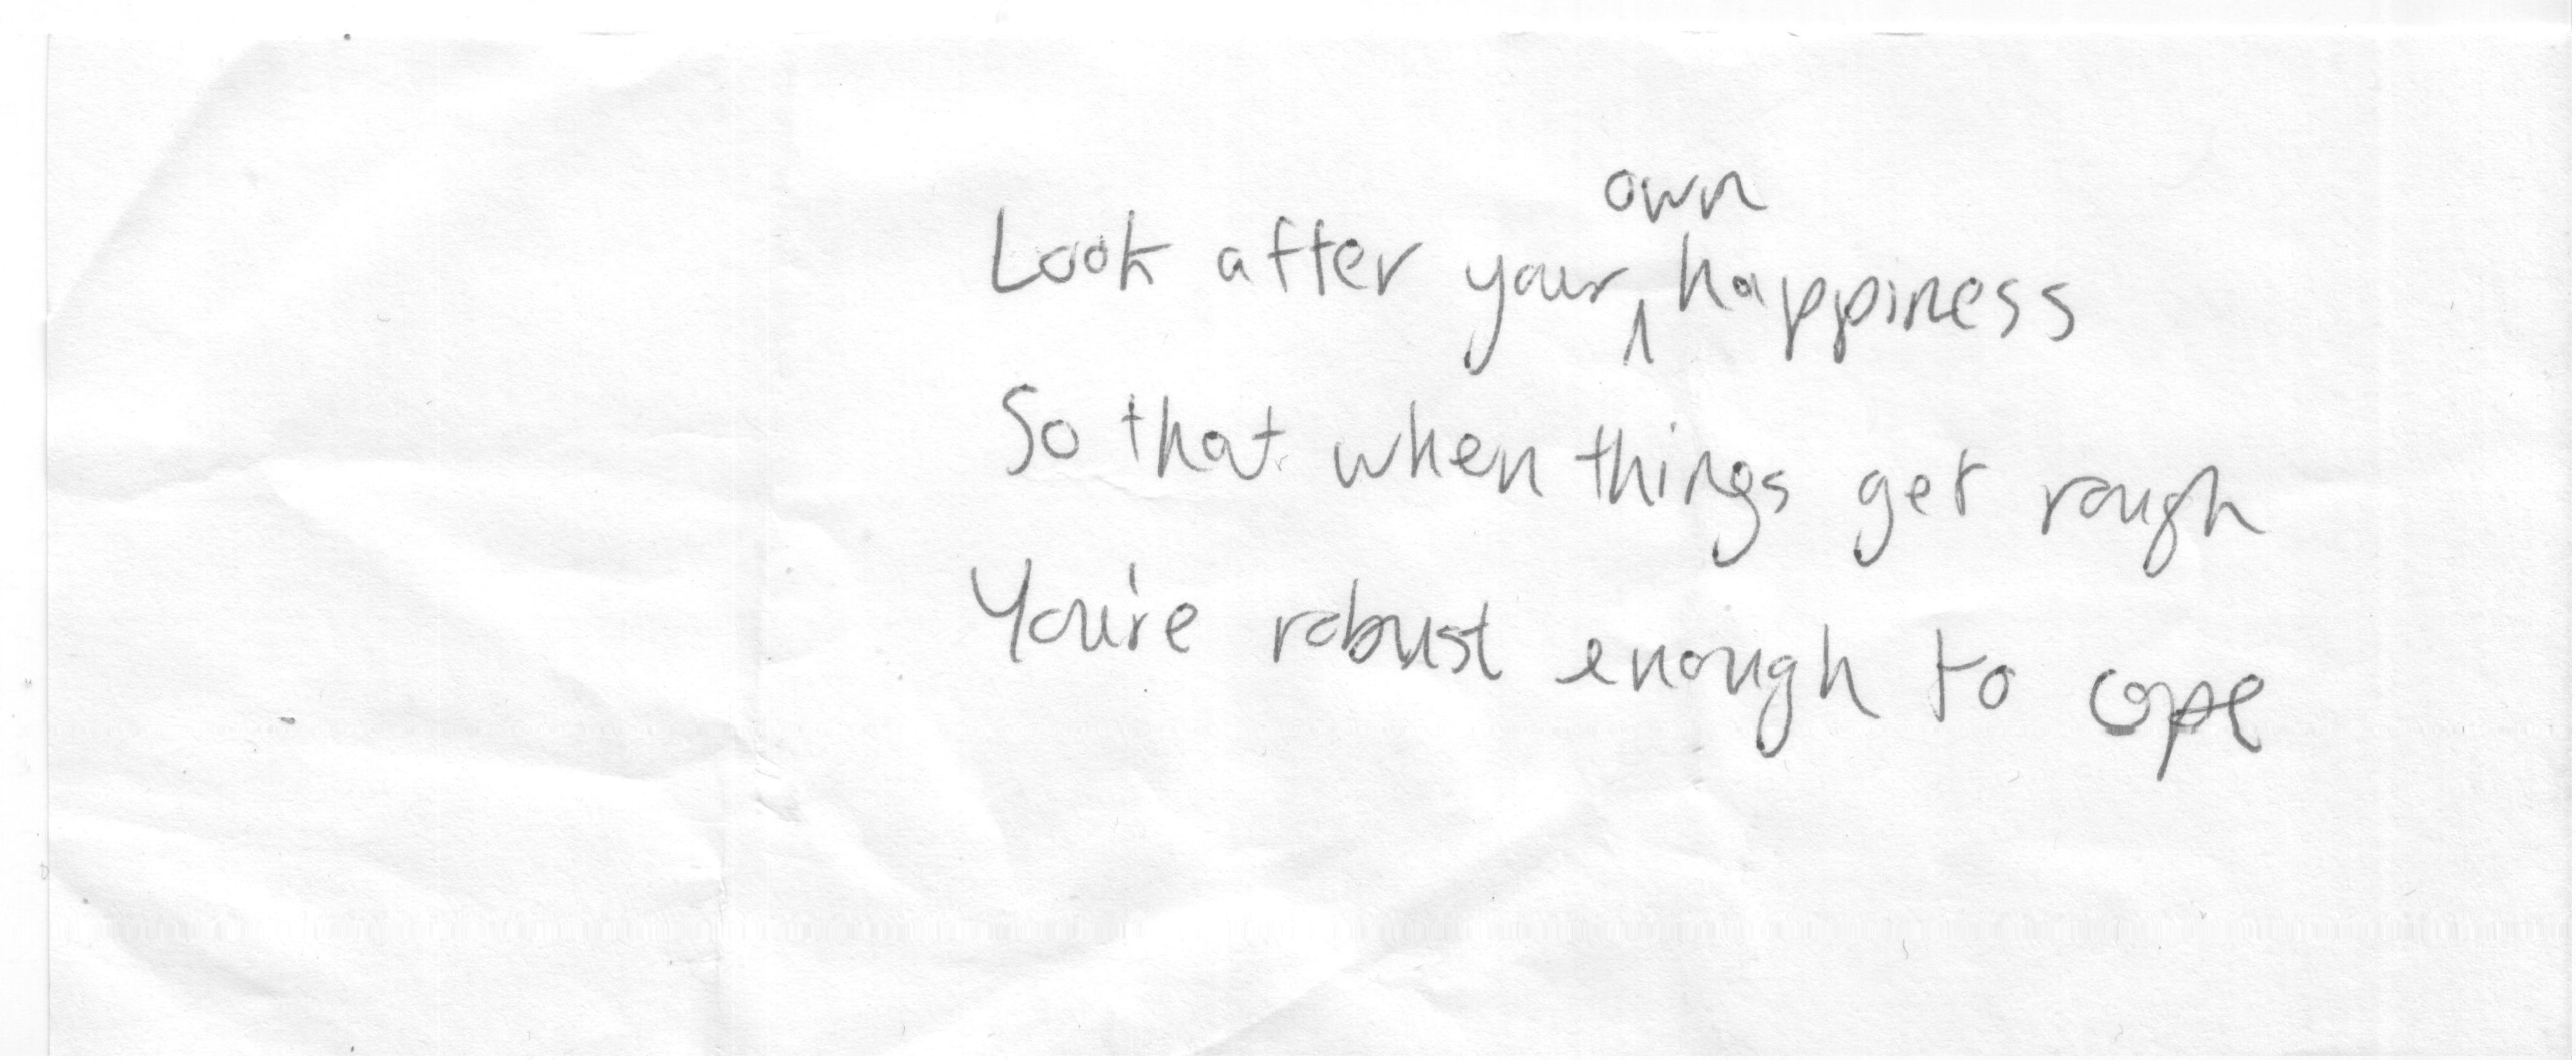 Look after your own happiness
So that when things get rough
You're robust enough to cope